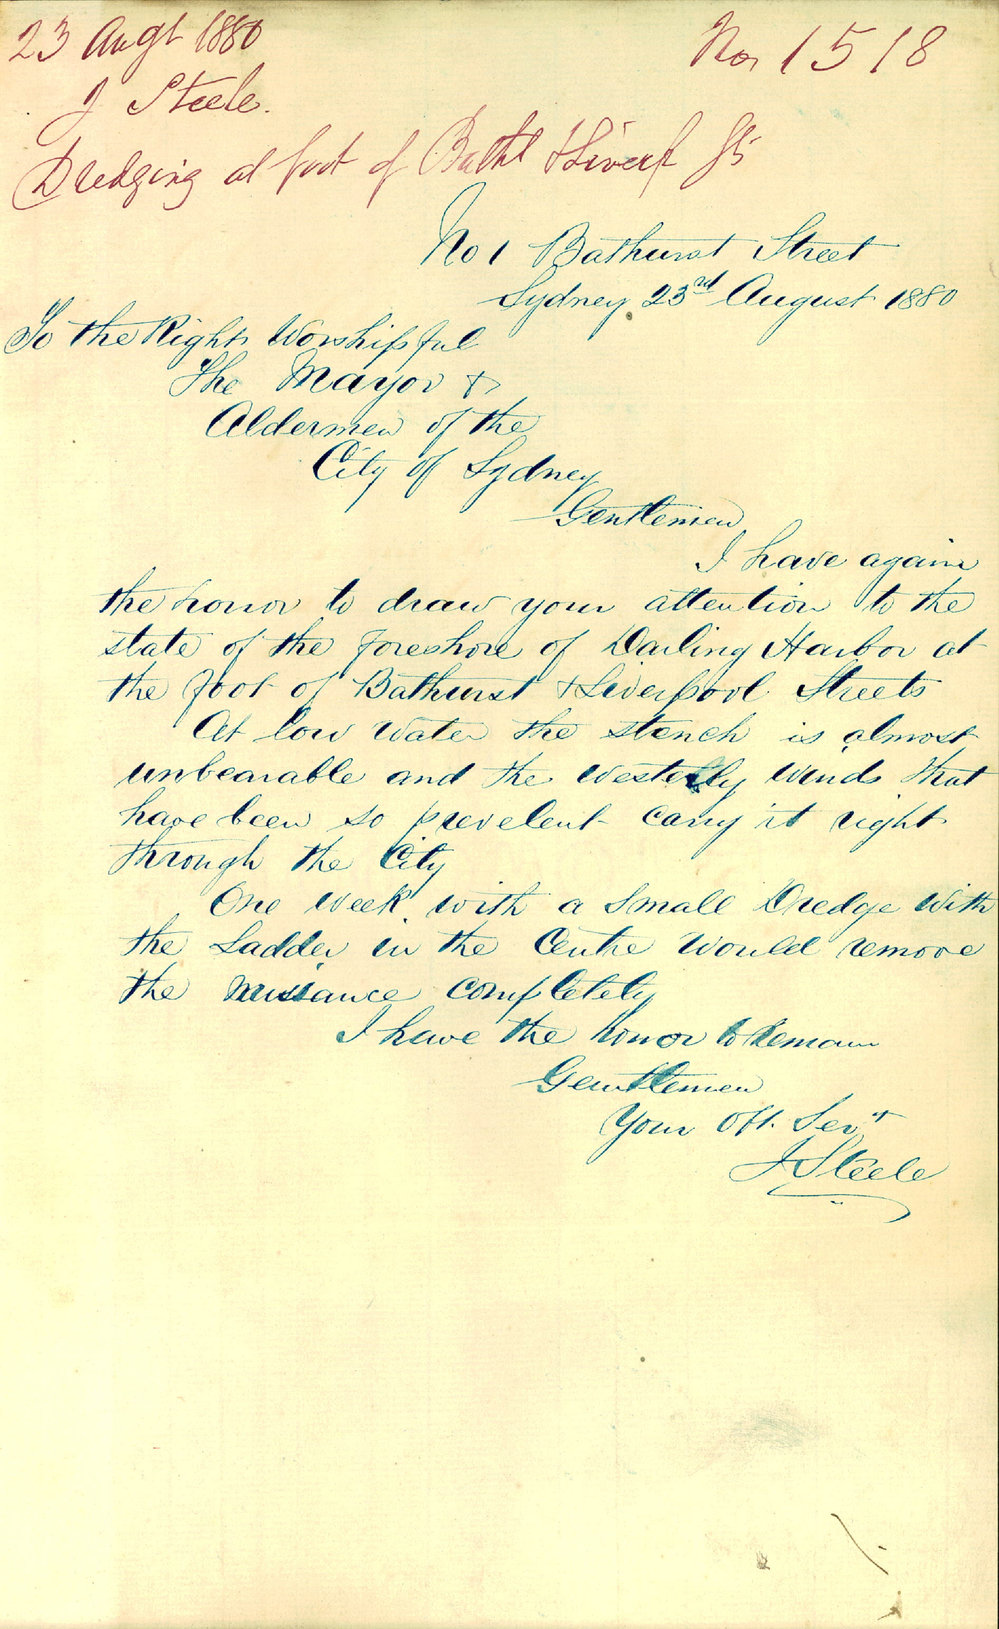 23 Augt 1880
No. 1518
J Steele.
Dredging at foot of Bathst & Liverp Sts
No 1 Bathurst Street
Sydney 23rd August 1880
To the Right Worshipful
The Mayor &
Aldermen of the
City of Sydney
Gentlemen
I have again
the honor to draw your attention to the
state of the foreshore of Darling Harbor at
the foot of Bathurst & Liverpool Streets
At low water the stench is almost
unbearable and the Westerly Winds that
have been so prevelent carry it right
through the City
One week with a small Dredge with
the Ladder in the Centre would remove
the nuisance completely
I have the honor to Remain
Gentlemen
Your Obt. Servt
J Steele